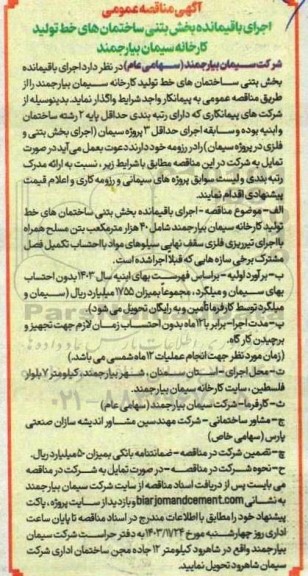 آگهی مناقصه عمومی
اجرای باقیمانده بخش بتنی ساختمان های خط تولید
کارخانه سیمان بیارجمند
شرکت سیمان بیارجمند (سهامی عام) در نظر دارد اجرای باقیمانده
بخش بتنی ساختمان های خط تولید کارخانه سیمان بیارجمند را از
طریق مناقصه عمومی به پیمانکار واجد شرایط واگذار نماید. بدینوسیله از
شرکت های پیمانکاری که دارای رتبه بندی حداقل پایه ۲ رشته ساختمان
و ابنیه بوده و سابقه اجرای حداقل ۳ پروژه سیمان (اجرای بخش بتنی و
فلزی در پروژه سیمان) را در رزومه خود دارند دعوت بعمل می آید در صورت
تمایل به شرکت در این مناقصه مطابق با شرایط زیر، نسبت به ارائه مدرک
رتبه بندی و لیست سوابق پروژه های سیمانی و رزومه کاری و اعلام قیمت
پیشنهادی اقدام نمایند.
الف- موضوع مناقصه - اجرای باقیمانده بخش بتنی ساختمان های خط
تولید کارخانه سیمان بیارجمند شامل ۴۰ هزار مترمکعب بتن مسلح همراه
با اجرای تیرریزی فلزی سقف نهایی سیلوهای مواد با احتساب تکمیل فصل
مشترک برخی سازه هایی که قبلا اجرا شده است.
ب- برآورد اولیه - براساس فهرست بهای ابنیه سال ۱۴۰۳ بدون احتساب
بهای سیمان و میلگرد، مجموعاً بمیزان ۱۷۵۵ میلیارد ریال (سیمان و
میلگرد توسط کارفرما تأمین و به رایگان تحویل می شود)
پ- مدت اجرا- برابر با ۱۲ ماه بدون احتساب زمان لازم جهت تجهیز و
برچیدن کارگاه.
(زمان مورد نظر جهت انجام عملیات ۱۲ ماه شمسی می باشد.)
ت- محل اجرای - استان سمنان، شهر بیارجمند، کیلومتر ۷ بلوار
فلسطین، سایت کارخانه سیمان بیارجمند.
ث- کارفرما- شرکت سیمان بیارجمند (سهامی عام)
ج- مشاور ساختمانی - شرکت مهندسین مشاور اندیشه سازان صنعتی
پارس (سهامی خاص)
چ- تضمین شرکت در مناقصه - ضمانتنامه بانکی بمیزان ۵۰ میلیارد ریال.
ح- نحوه شرکت در مناقصه - در صورت تمایل به شرکت در مناقصه
می بایست پس از دریافت اسناد مناقصه از سایت شرکت سیمان بیارجمند
به نشانی biarjomandcement.com و بازدید از سایت پروژه، پاکت
پیشنهاد خود را مطابق با اطلاعات مندرج در اسناد مناقصه تا پایان ساعت
اداری روز چهارشنبه مورخ ۱۴۰۳/۱۱/۲۴ به دفتر حراست شرکت سیمان
بیارجمند واقع در شاهرود کیلومتر ۱۲ جاده مجن ساختمان اداری شرکت
سیمان شاهرود تحویل نمایید.